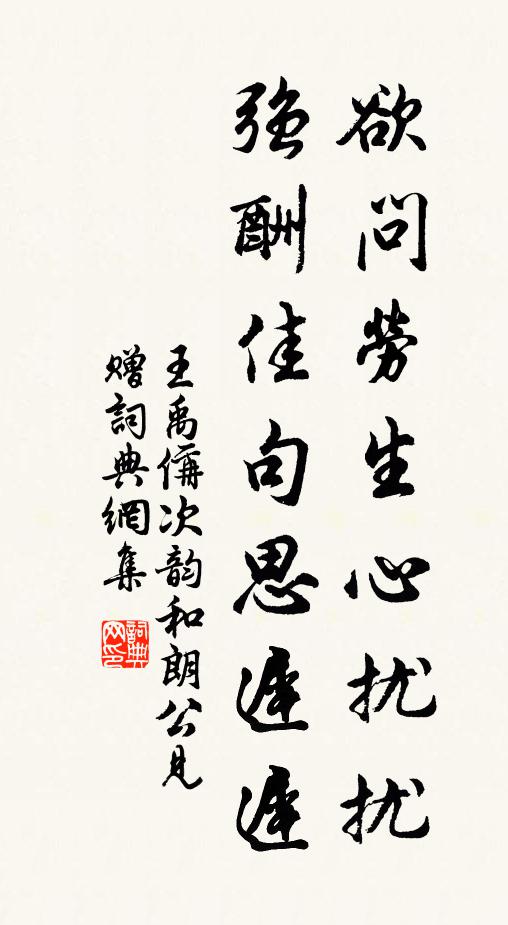 欲问劳生心扰扰
強酬佳句思遲遲
王禹偁次韵和朗公見
贈詞典網集
詞典网印